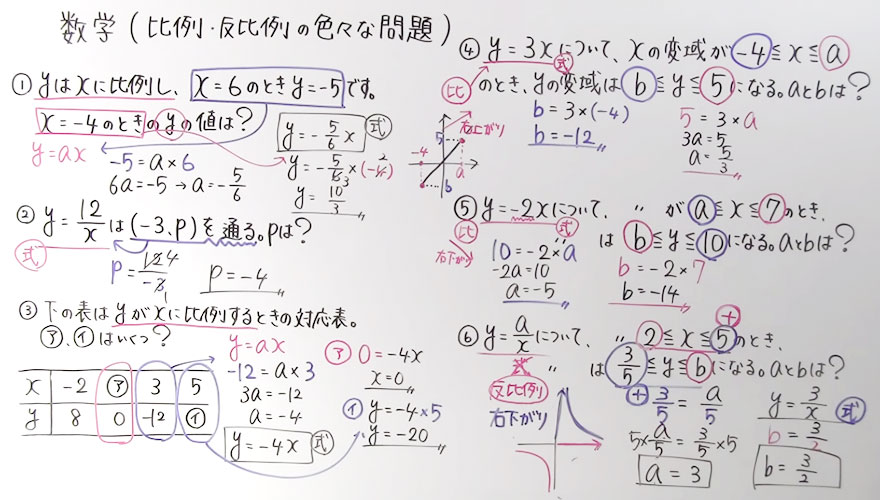 数学(比例・反比例の色々な問題)
① yはxに比例し、x=6のときy=-5です。
x=-4のときのyの値は?
y=ax
-5=a×6
6a=-5→a=-5/6
y=-5/6x 式
y=-5/6×(-4)
y=10/3
② y=12/xは(-3、p)を通る。pは?
式
p=12/-3
p=-4
③ 下の表はyがxに比例するときの対応表。
㋐、㋑はいくつ?
x -2 ㋐ 3 5
y 8 0 -12 ㋑
y=ax
-12=a×3
3a=-12
a=-4
y=-4x 式
㋐ 0=-4x
x=0
㋑ y=-4×5
y=-20
④ y=3xについて、xの変域が-4≦x≦a
式
比 のとき、yの変域はb≦y≦5になる。aとbは?
右上がり
5
-4
a
b
b=3×(-4)
b=-12
5=3×a
3a=5
a=5/3
⑤ y=-2xについて、 〃 がa≦x≦7のとき、
比 式
〃 はb≦y≦10になる。aとbは?
右下がり
10=-2×a
-2a=10
a=-5
b=-2×7
b=-14
⑥ y=a/xについて、 〃 2≦x≦5のとき、
+
式
〃 は3/5≦y≦bになる。aとbは?
反比例
右下がり
+
3/5=a/5
5×a/5=3/5×5
a=3
y=3/x 式
b=3/2
b=3/2